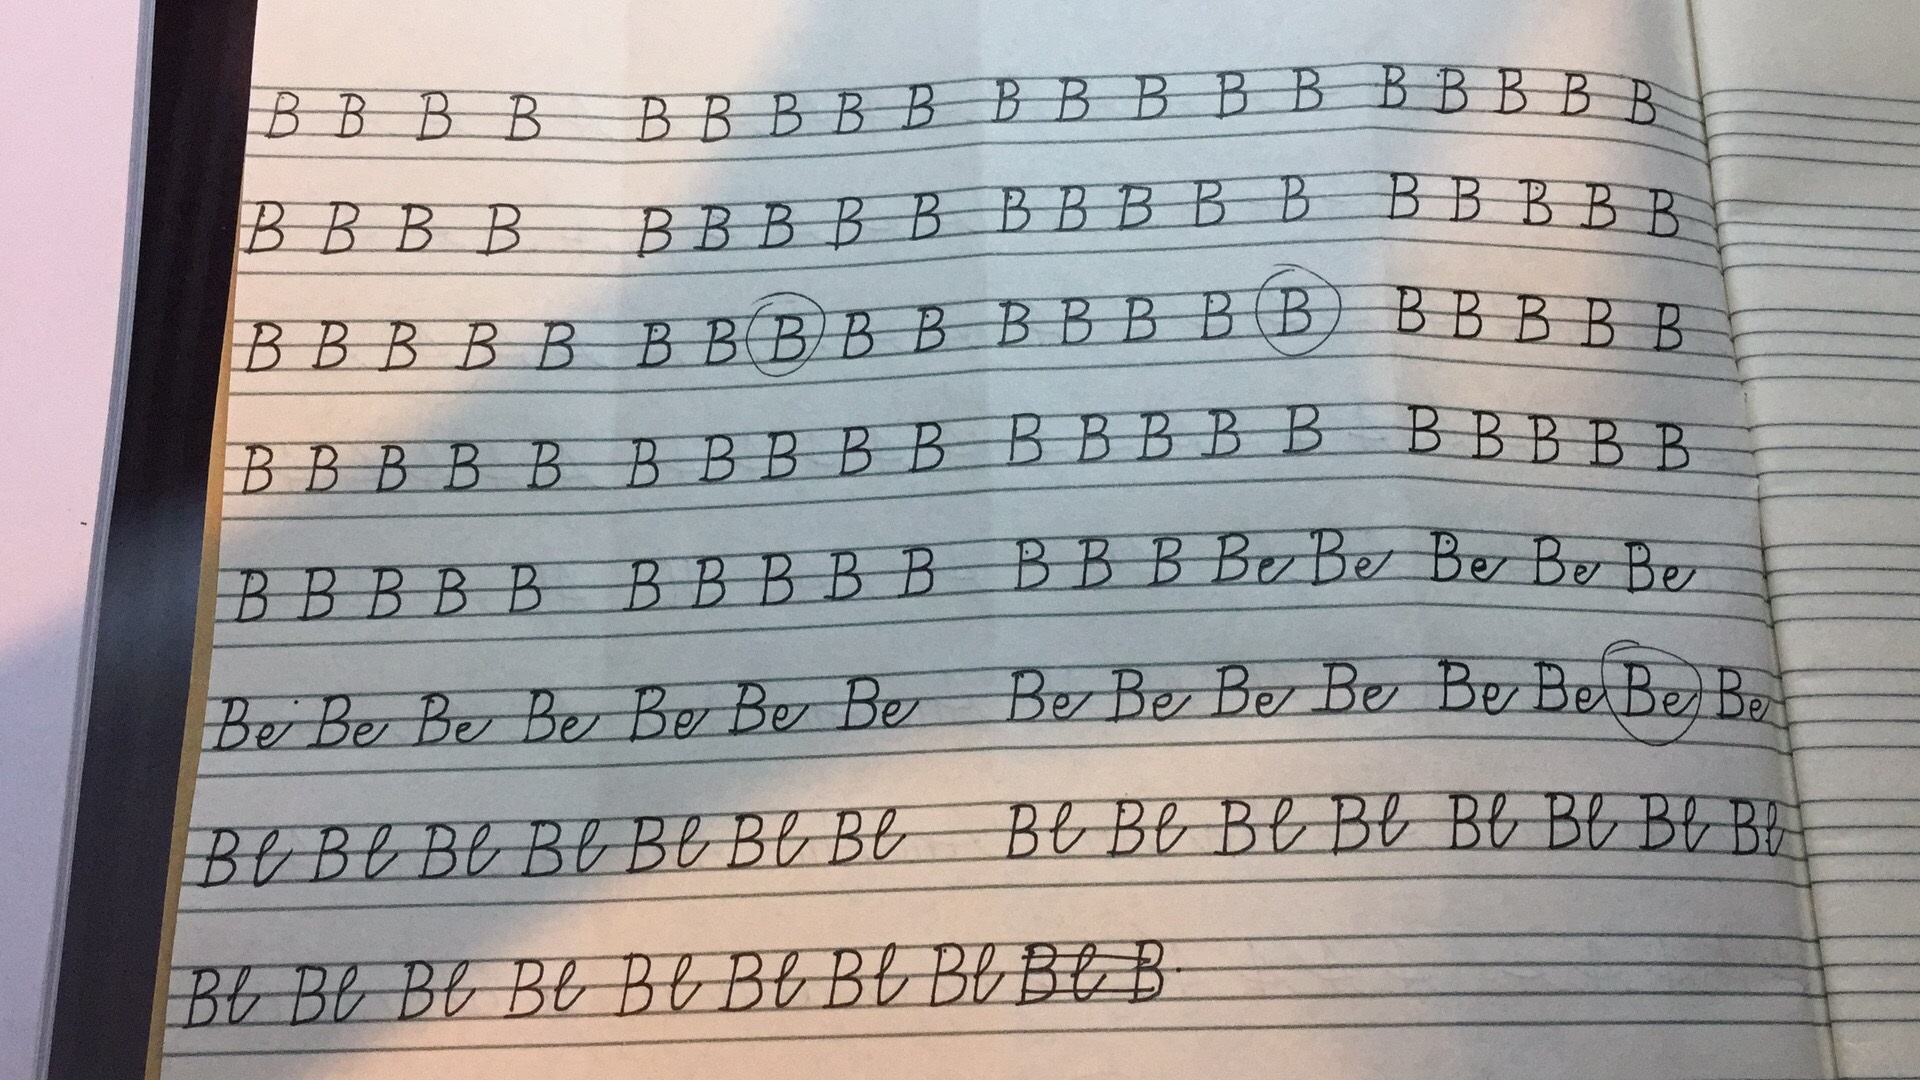 B B B B B B B B B B B B B B B B B B B
B B B B B B B B B B B B B B B B B B B
B B B B B B B B B B B B B B B B B B B B
B B B B B B B B B B B B B B B B B B B B
B B B B B B B B B B B B B Be Be Be Be Be
Be Be Be Be Be Be Be Be Be Be Be Be Be Be Be
Bl Bl Bl Bl Bl Bl Bl Bl Bl Bl Bl Bl Bl Bl Bl
Bl Bl Bl Bl Bl Bl Bl Bl Bl B